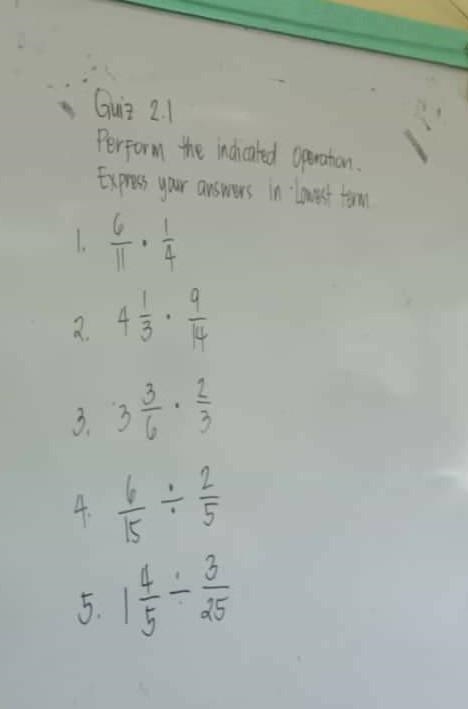 Quiz 2.1
Perform the indicated operation.
Express your answers in lowest term
1. 6/11 · 1/4
2. 4 1/3 · 9/14
3. 3 3/6 · 2/3
4. 6/15 ÷ 2/5
5. 1 4/5 ÷ 3/25